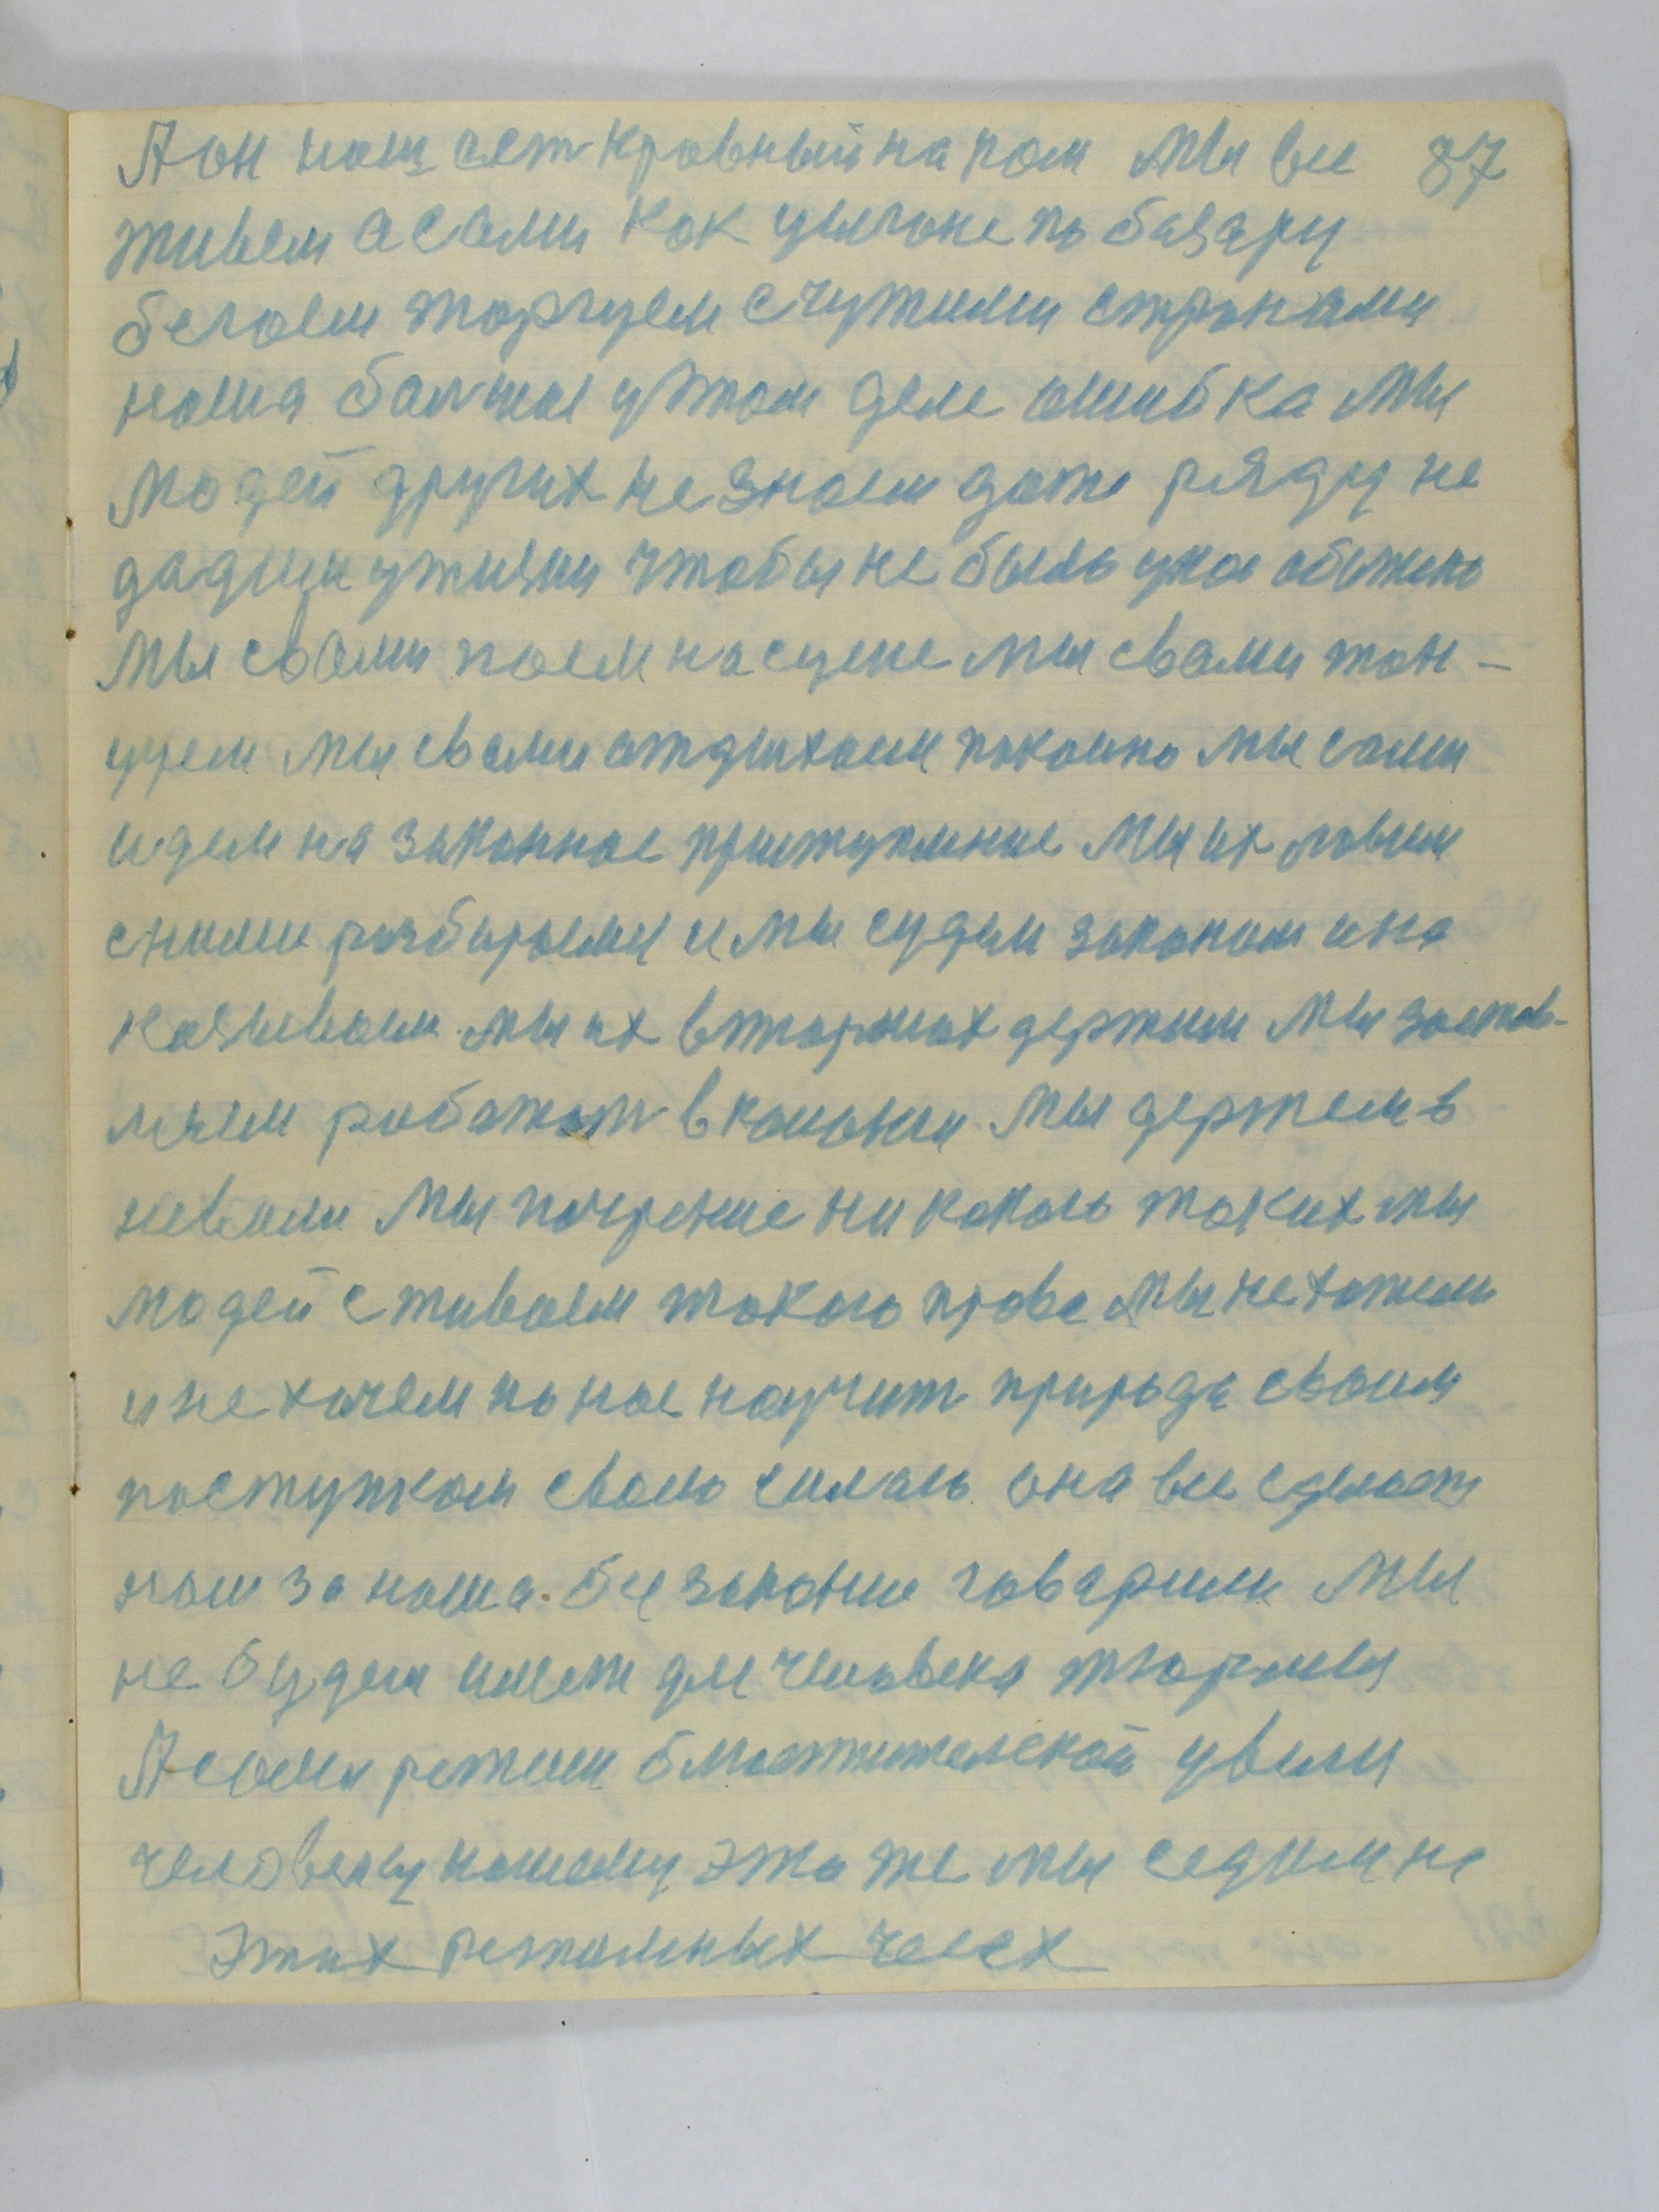 А он нош ест кровный на ном Мы вси 87
живем а сами как цыгоне по базару
бегоем торгуем счужими странами
наша балшая у этом деле ошибка Мы
людей других не знаем даже ряду не
дадим у жизни чтобы не быль у нас обижено
Мы свами поем на сцене мы свами тон-
цуем мы свами отдыхаем покоино мы сами
идем на законное приступление Мы их ловим
сними разбираемся и мы судим законом и на
казываем. мы их в тюрмах держим Мы застав-
ляем работат в колонии Мы держем в
неволи Мы почрение ни какого таких мы
людей с живаем такого права мы не
и не хочем но нас научит природа своим
поступком своею силою она все сделает
нам за наша. беззаконие говорим Мы
не будем имет для человека тюрмы
А самы режим блюстительской увели
человеку нашему это же мы седим на
этих режимных